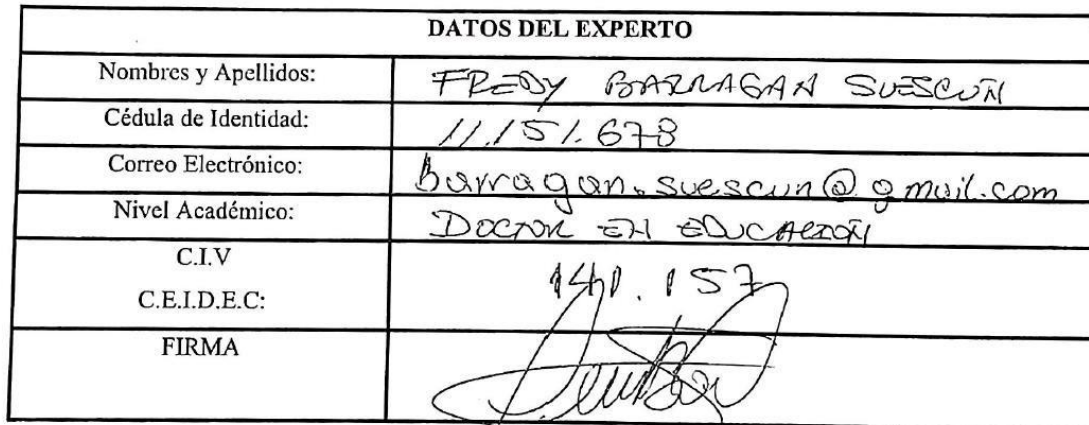 DATOS DEL EXPERTO
Nombres y Apellidos: FREDY BARRAGAN SUESCUN
Cédula de Identidad: 11.151.678
Correo Electrónico: barragan.suescun@gmail.com
Nivel Académico: DOCTOR EN EDUCACIÓN
C.I.V
C.E.I.D.E.C: 141.157
FIRMA